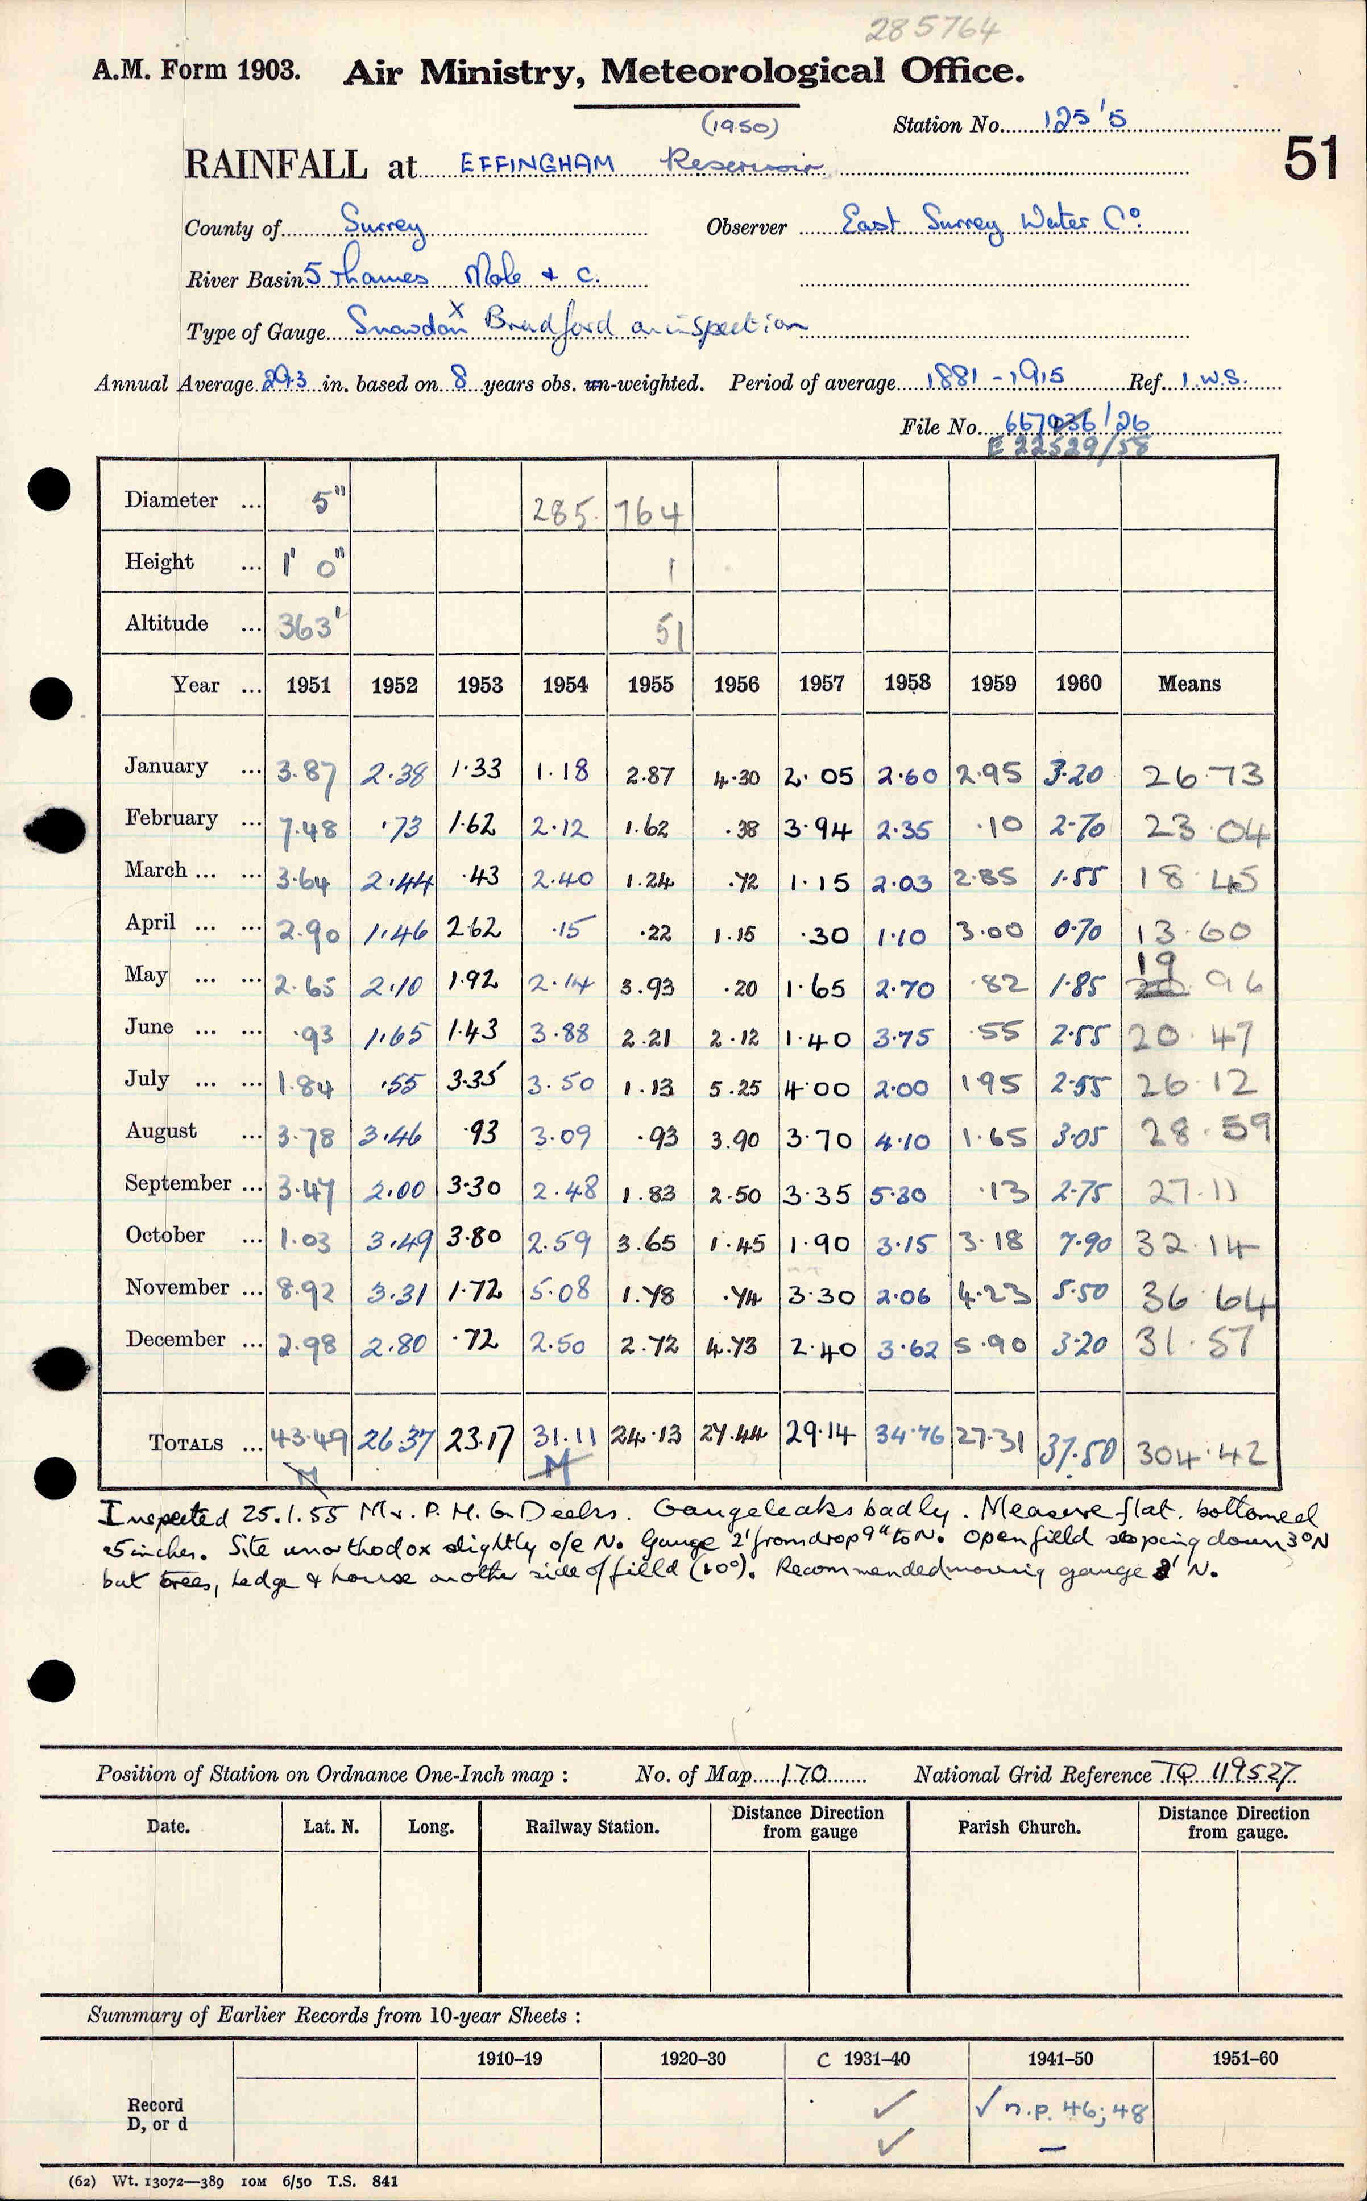 285764
A.M. Form 1903. Air Ministry, Meteorological Office.
(1950) Station No. 125'5
RAINFALL at EFFINGHAM Reservoir 51
County of Surrey Observer East Surrey Water Co.
River Basin 5 Thames Mole & C.
Type of Gauge Snowdon x Bradford on inspection
Annual Average 29.3 in. based on 8 years obs. un-weighted. Period of average 1881-1915 Ref. I.W.S.
File No. 667036/26
E 22529/58
Diameter ... 5" 285. 764
Height ... 1' 0" 1
Altitude ... 363' 51
Year ... 1951 1952 1953 1954 1955 1956 1957 1958 1959 1960 Means
January ... 3.87 2.38 1.33 1.18 2.87 4.30 2.05 2.60 2.95 3.20 26.73
February ... 7.48 .73 1.62 2.12 1.62 .38 3.94 2.35 .10 2.70 23.04
March ... ... 3.64 2.44 .43 2.40 1.24 .72 1.15 2.03 2.85 1.55 18.45
April ... ... 2.90 1.46 2.62 .15 .22 1.15 .30 1.10 3.00 0.70 13.60
May ... ... 2.65 2.10 1.92 2.14 3.93 .20 1.65 2.70 .82 1.85 19.96
June ... ... .93 1.65 1.43 3.88 2.21 2.12 1.40 3.75 .55 2.55 20.47
July ... ... 1.84 .55 3.35 3.50 1.13 5.25 4.00 2.00 1.95 2.55 26.12
August ... 3.78 3.46 .93 3.09 .93 3.90 3.70 4.10 1.65 3.05 28.59
September ... 3.47 2.00 3.30 2.48 1.83 2.50 3.35 5.30 .13 2.75 27.11
October ... 1.03 3.49 3.80 2.59 3.65 1.45 1.90 3.15 3.18 7.90 32.14
November ... 8.92 3.31 1.72 5.08 1.78 .74 3.30 2.06 4.23 5.50 36.64
December ... 2.98 2.80 .72 2.50 2.72 4.73 2.40 3.62 5.90 3.20 31.57
TOTALS ... 43.49 26.37 23.17 31.11 24.13 27.44 29.14 34.76 27.31 37.50 304.42
M M
Inspected 25.1.55 Mr. P. M. G. Deeks. Gauge leaks badly. Measure flat bottomed
.5 inches. Site unorthodox slightly o/e N. Gauge 2' from drop 9" to N. Open field sloping down 3° N
but trees, hedge & house on other side of field (10°). Recommended moving gauge 2' N.
Position of Station on Ordnance One-Inch map : No. of Map 170 National Grid Reference TQ 119527
Date. Lat. N. Long. Railway Station. Distance Direction from gauge Parish Church. Distance Direction from gauge.
Summary of Earlier Records from 10-year Sheets :
1910–19 1920–30 C 1931–40 1941–50 1951–60
Record ✓ ✓ n.p. 46; 48
D, or d ✓ –
(62) Wt. 13072—389 10M 6/50 T.S. 841